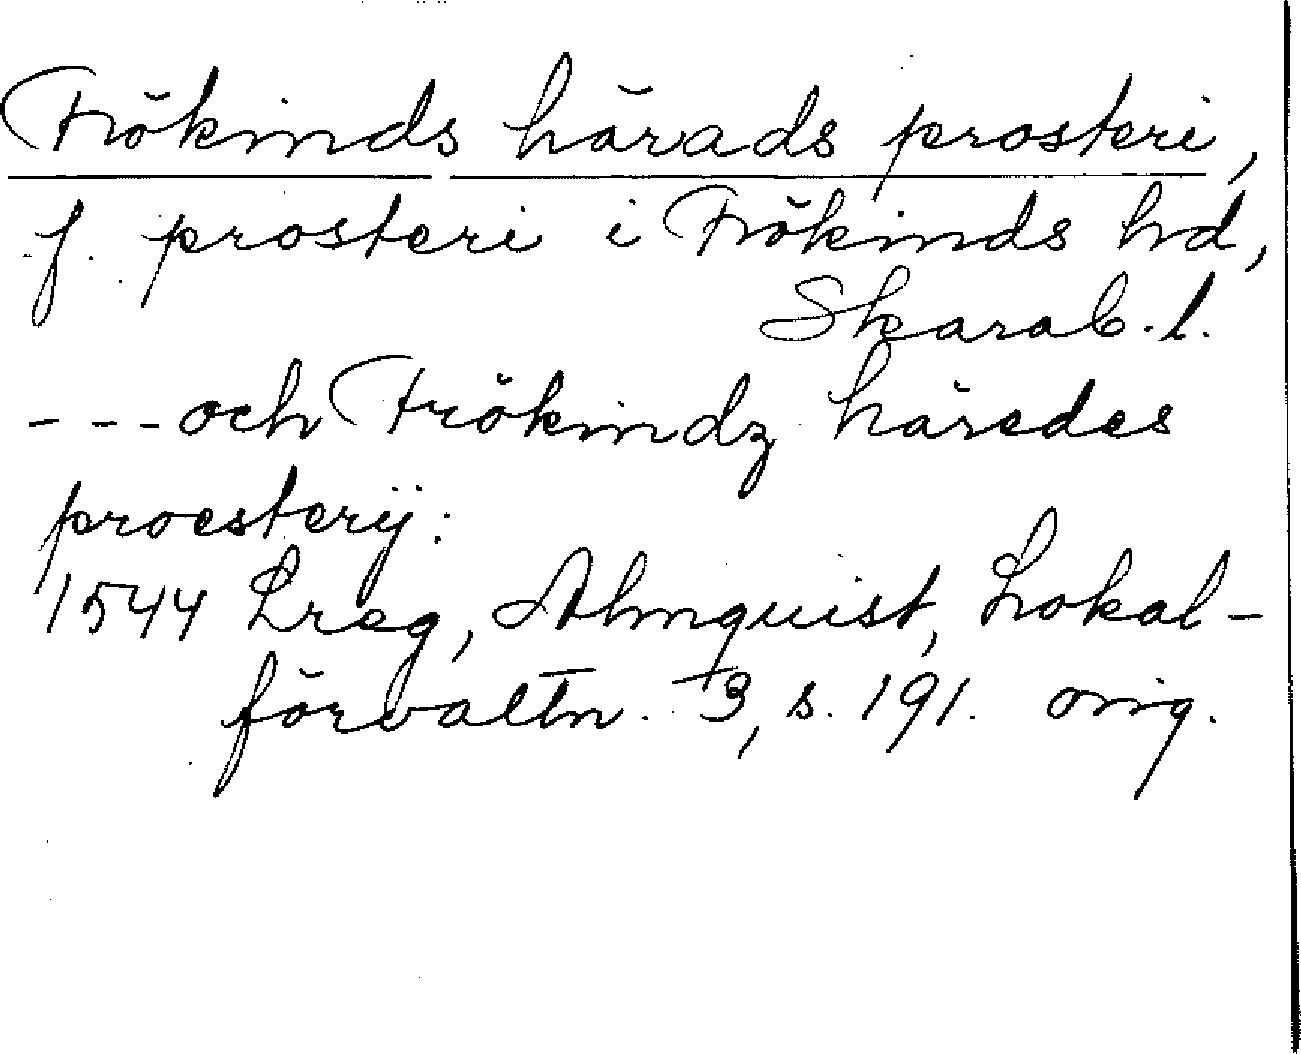 Frökinds härads prosteri,
f. prosteri i Frökinds hd,
Skarab. l.
- - - och Frökindz häredes
proesterÿ:
1544 Lreg, Almquist, Lokal-
förvaltn. 3, s. 191. orig.